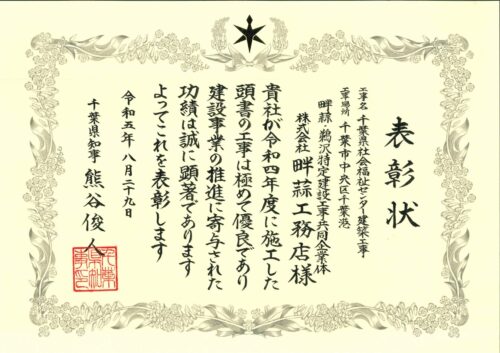 表彰状
工事名 千葉県社会福祉センター建築工事
工事場所 千葉市中央区千葉港
畔蒜・鵜沢特定建設工事共同企業体
株式会社 畔蒜工務店様
貴社が令和四年度に施工した
頭書の工事は極めて優良であり
建設事業の推進に寄与された
功績は誠に顕著であります
よってこれを表彰します
令和五年八月二十九日
千葉県知事 熊谷俊人